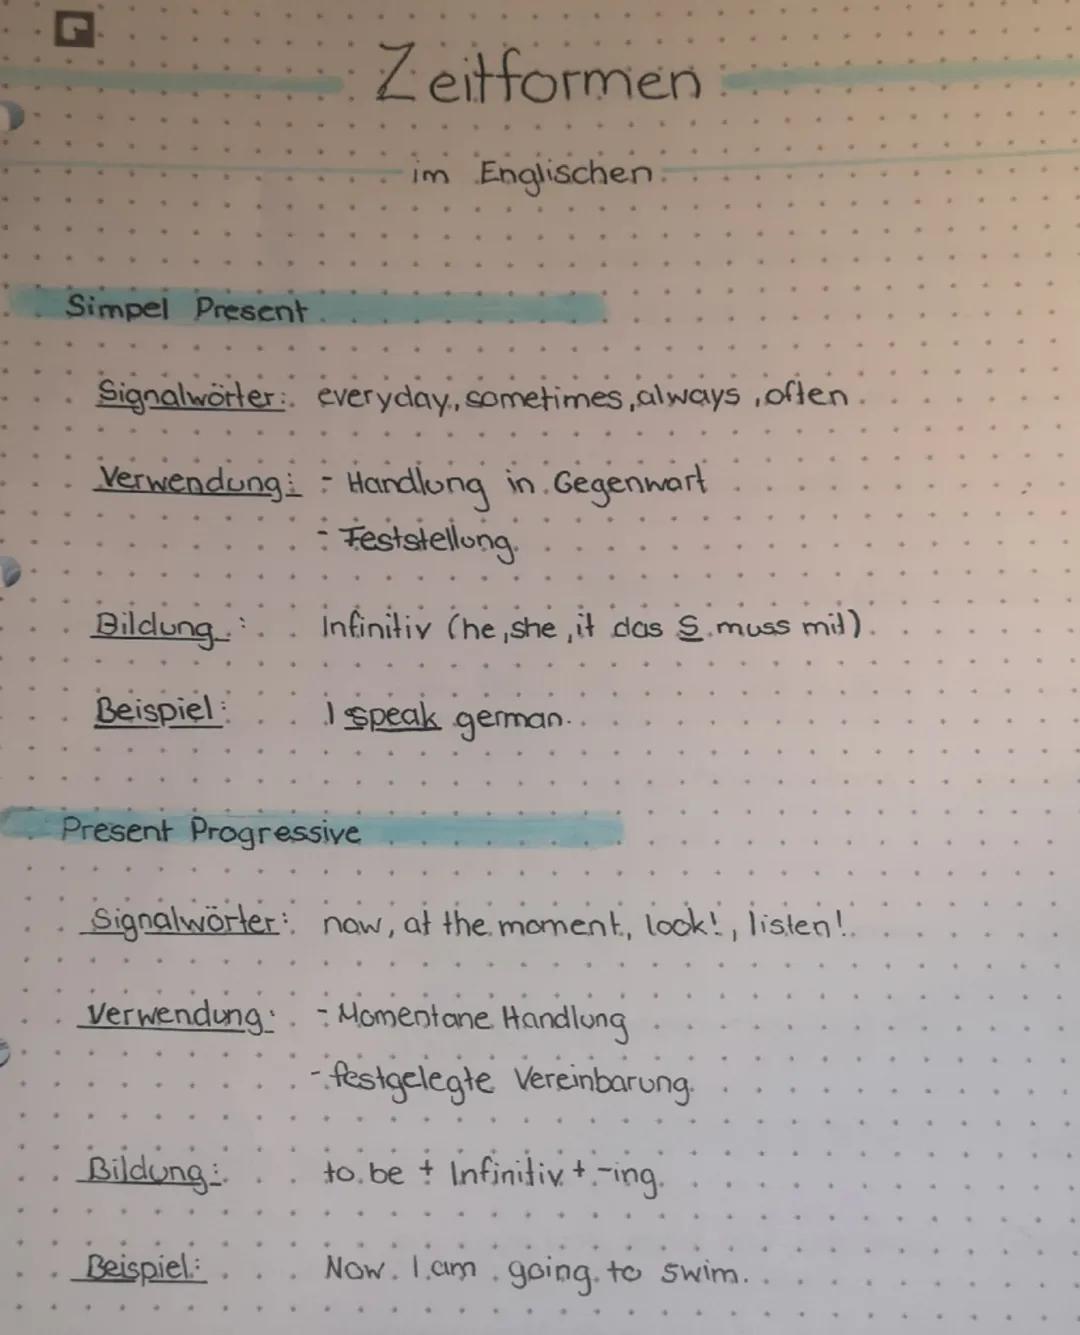 Zeitformen
im Englischen
Simpel Present
Signalwörter: everyday, sometimes, always, often
Verwendung: - Handlung in Gegenwart
- Feststellung
Bildung: Infinitiv (he, she, it das S muss mit)
Beispiel: I speak german.
Present Progressive
Signalwörter: now, at the moment, look!, listen!
Verwendung: - Momentane Handlung
- festgelegte Vereinbarung
Bildung: to be + Infinitiv + -ing
Beispiel: Now I am going to swim.